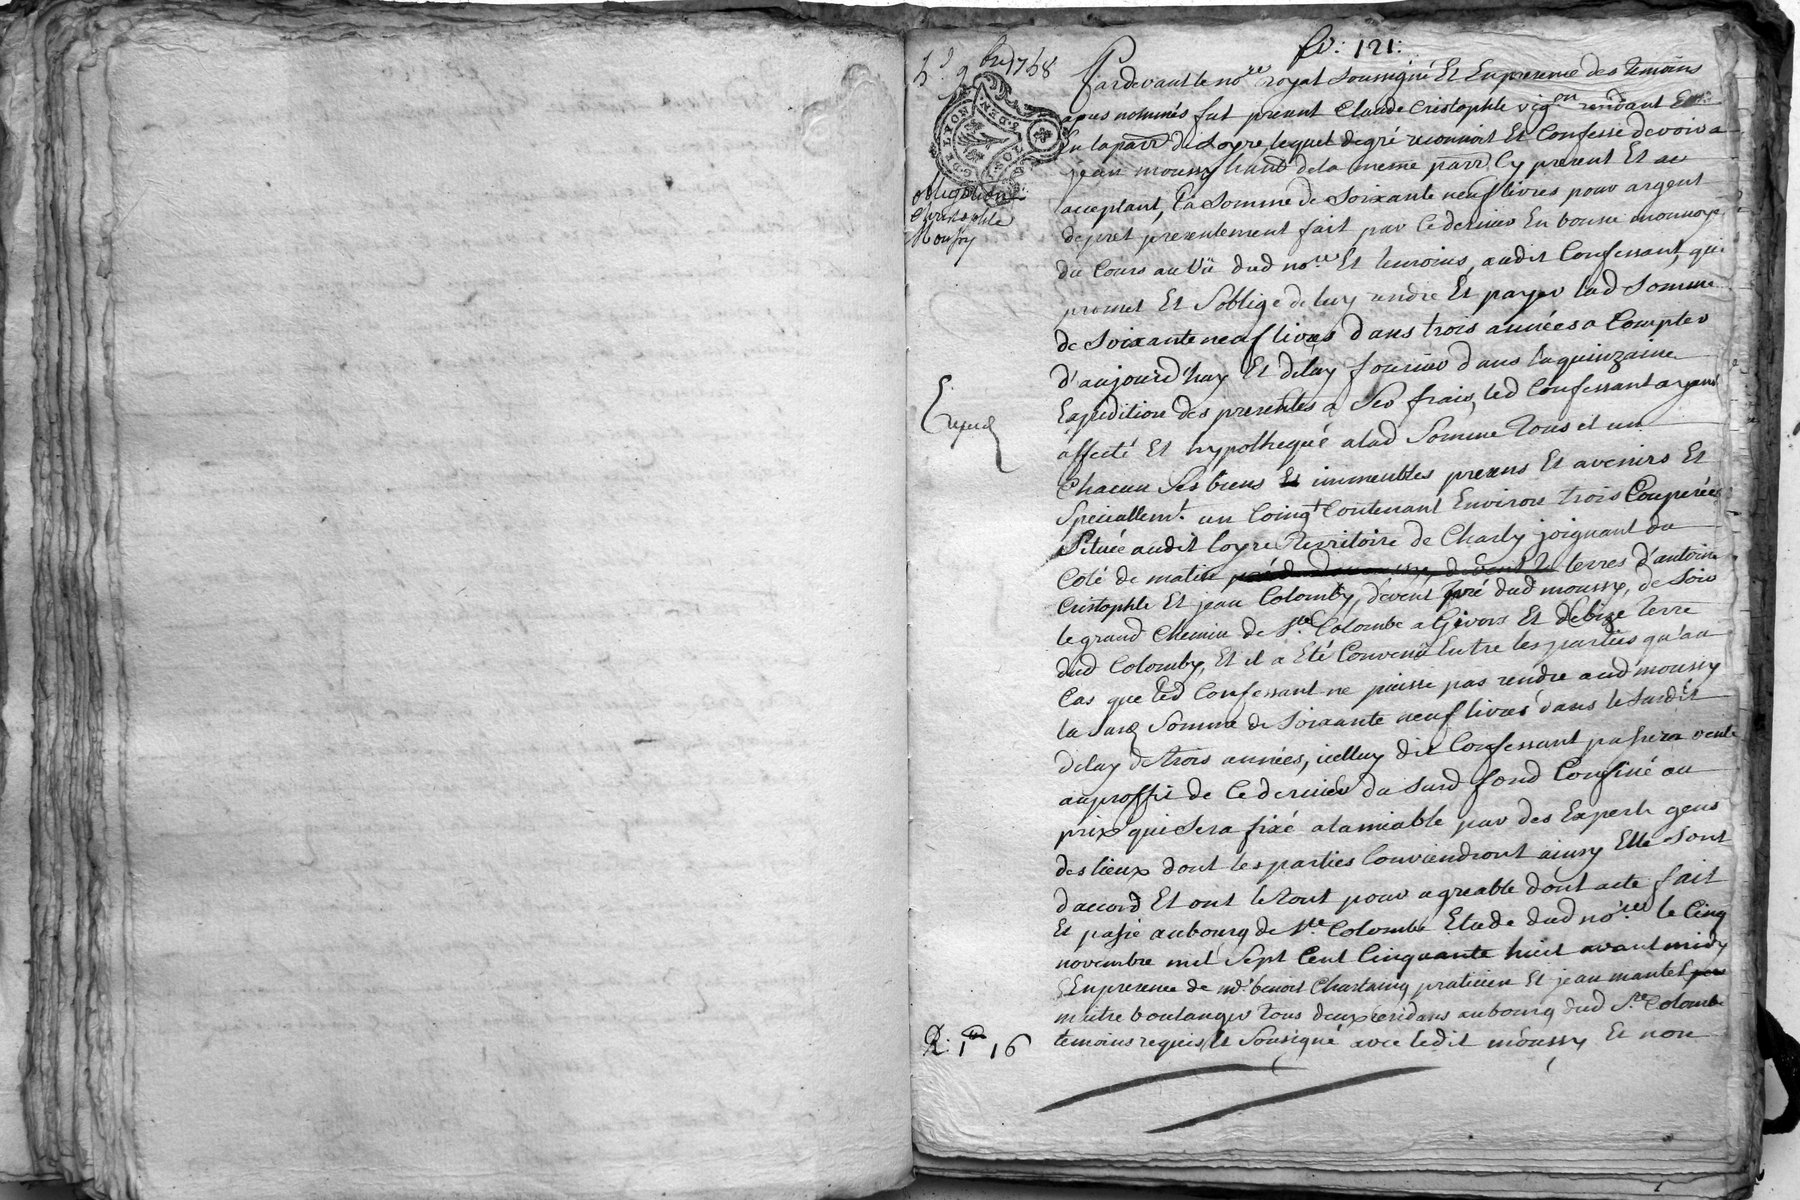 fo: 121:
5.e 9bre 1758
GEN. DE LYON
2. SOLS
obligation
Christophle
Moussy
Expedl
Pardevant le nore royal soussigné Et En presence des temoins
apres nommés fut present Claude Cristophle vigon residant
En la parr de Loyre, lequel de gré reconnoit Et Confesse devoir a
jean moussy hant de la mesme parr. Cy present Et ac
acceptant, la somme de Soixante neuf livres pour argent
de pret presentement fait par Ce dernier En bonne monnoye
du Cours au Vû dud nore Et temoins, audit Confessant, qui
promet Et s'oblige de luy rendre Et payer lad somme
de Soixante neuf livres dans trois années a Compter
d'aujourd'huy Et de luy fournir dans la quinzaine
Expedition des presentes a Ses frais, led Confessant ayant
affecté Et hypothequé a lad Somme Tous et un
Chacun Ses biens Et immeubles presens Et avenirs Et
Speciallemt. un Coing Contenant Environ trois Couperées
Située audit loyre Territoire de Charly joignant du
Coté de matin terres d'antoine
Cristophle Et jean Colomby, devent pré dud moussy, de Soir
le grand Chemin de Ste. Colombe a Givors Et de bize terre
dud Colomby, Et il a Eté Convenû Entre les parties qu'au
Cas que led Confessant ne puisse pas rendre aud moussy
la susd Somme de Soixante neuf livres dans le Susdit
delay de trois années, icelluy dit Confessant passera vente
au proffit de Ce dernier du susd fond Confiné au
prix qui Sera fixé a lamiable par des Experts gens
des lieux dont les parties Conviendront ainsy Elle sont
d'accord Et ont le tout pour agreable dont acte fait
Et passé au bourg de Ste Colombe Etude dud nore. le Cinq
novembre mil Sept Cent Cinquante huit avant midy
En presence de md. benoit Chartaing praticien Et jean mantel
maitre boulanger Tous deux residans au bourg dud Ste Colombe
temoins requis Et Sousigné avec ledit moussy Et non
R: 1re 16